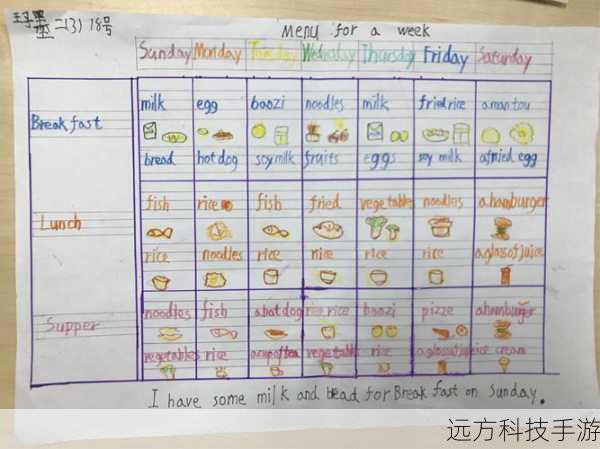 二(3) 18号
Menu for a week
Sunday Monday Tuesday Wednesday Thursday Friday Saturday
Breakfast
milk egg baozi noodles milk friedrice a mantou
bread hotdog soymilk fruits eggs soy milk afried egg
Lunch
fish rice fish fried vegetable noodles a hamburger
rice noodles rice rice rice rice aglassofjuice
Supper
noodles fish a hot dog rice baozi pizze a hamburger
vegetables rice acupoftea vegetable rice aglassofjuice cream
I have some milk and bread for Breakfast on Sunday.
远方科技手游